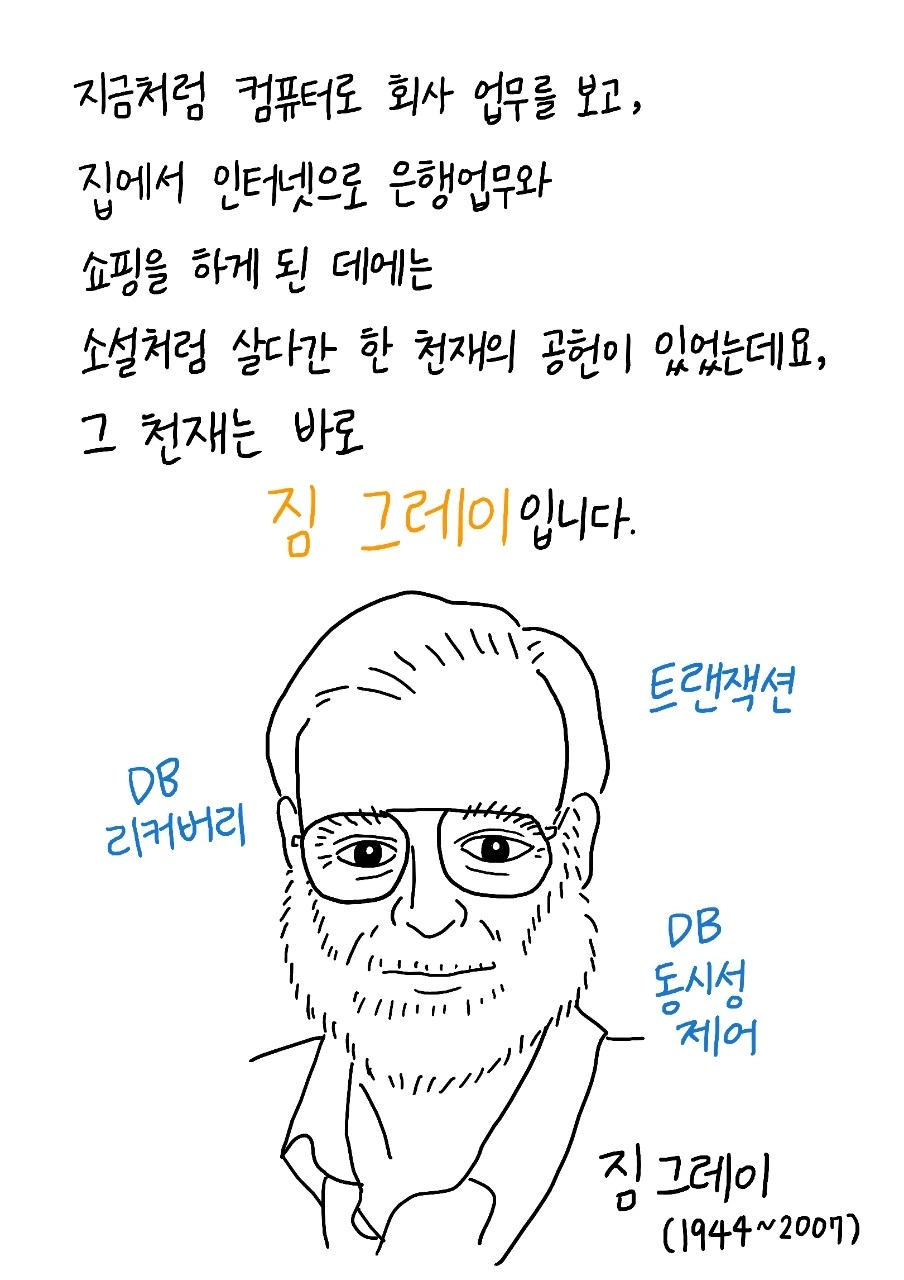 지금처럼 컴퓨터로 회사 업무를 보고,
집에서 인터넷으로 은행업무와
쇼핑을 하게 된 데에는
소설처럼 살다간 한 천재의 공헌이 있었는데요,
그 천재는 바로
짐 그레이입니다.
트랜잭션
DB
리커버리
DB
동시성
제어
짐 그레이
(1944~2007)